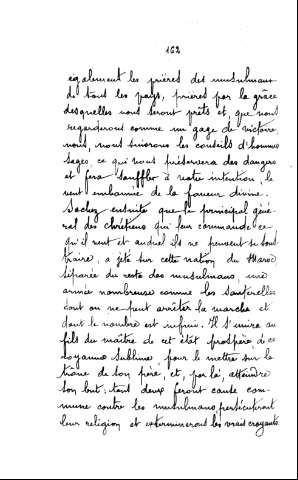 162
également les prières des musulmans
de tous les pays, prières par la grâce
desquelles nous serons prêts et que nous
regarderons comme un gage de victoire
nous, nous suivrons les conseils d'hommes
sages, ce qui nous préservera des dangers
et fera souffler à notre intention, le
vent embaumé de la faveur divine.
Sachez ensuite que le principal géné-
ral des chrétiens qui leur commande ce
qu'il veut et auquel ils ne peuvent se sous
traire, a jeté sur cette nation du Maroc
séparée du reste des musulmans, une
armée nombreuse comme les sauterelles
dont on ne peut arrêter la marche et
dont le nombre est infini. Il s'unira au
fils du maître de cet état prospère, de ce
royaume sublime pour le mettre sur le
trône de son père, et, par là, atteindre
son but; tous deux feront cause com-
mune contre les musulmans, persécuteront
leur religion et extermineront les vrais croyants